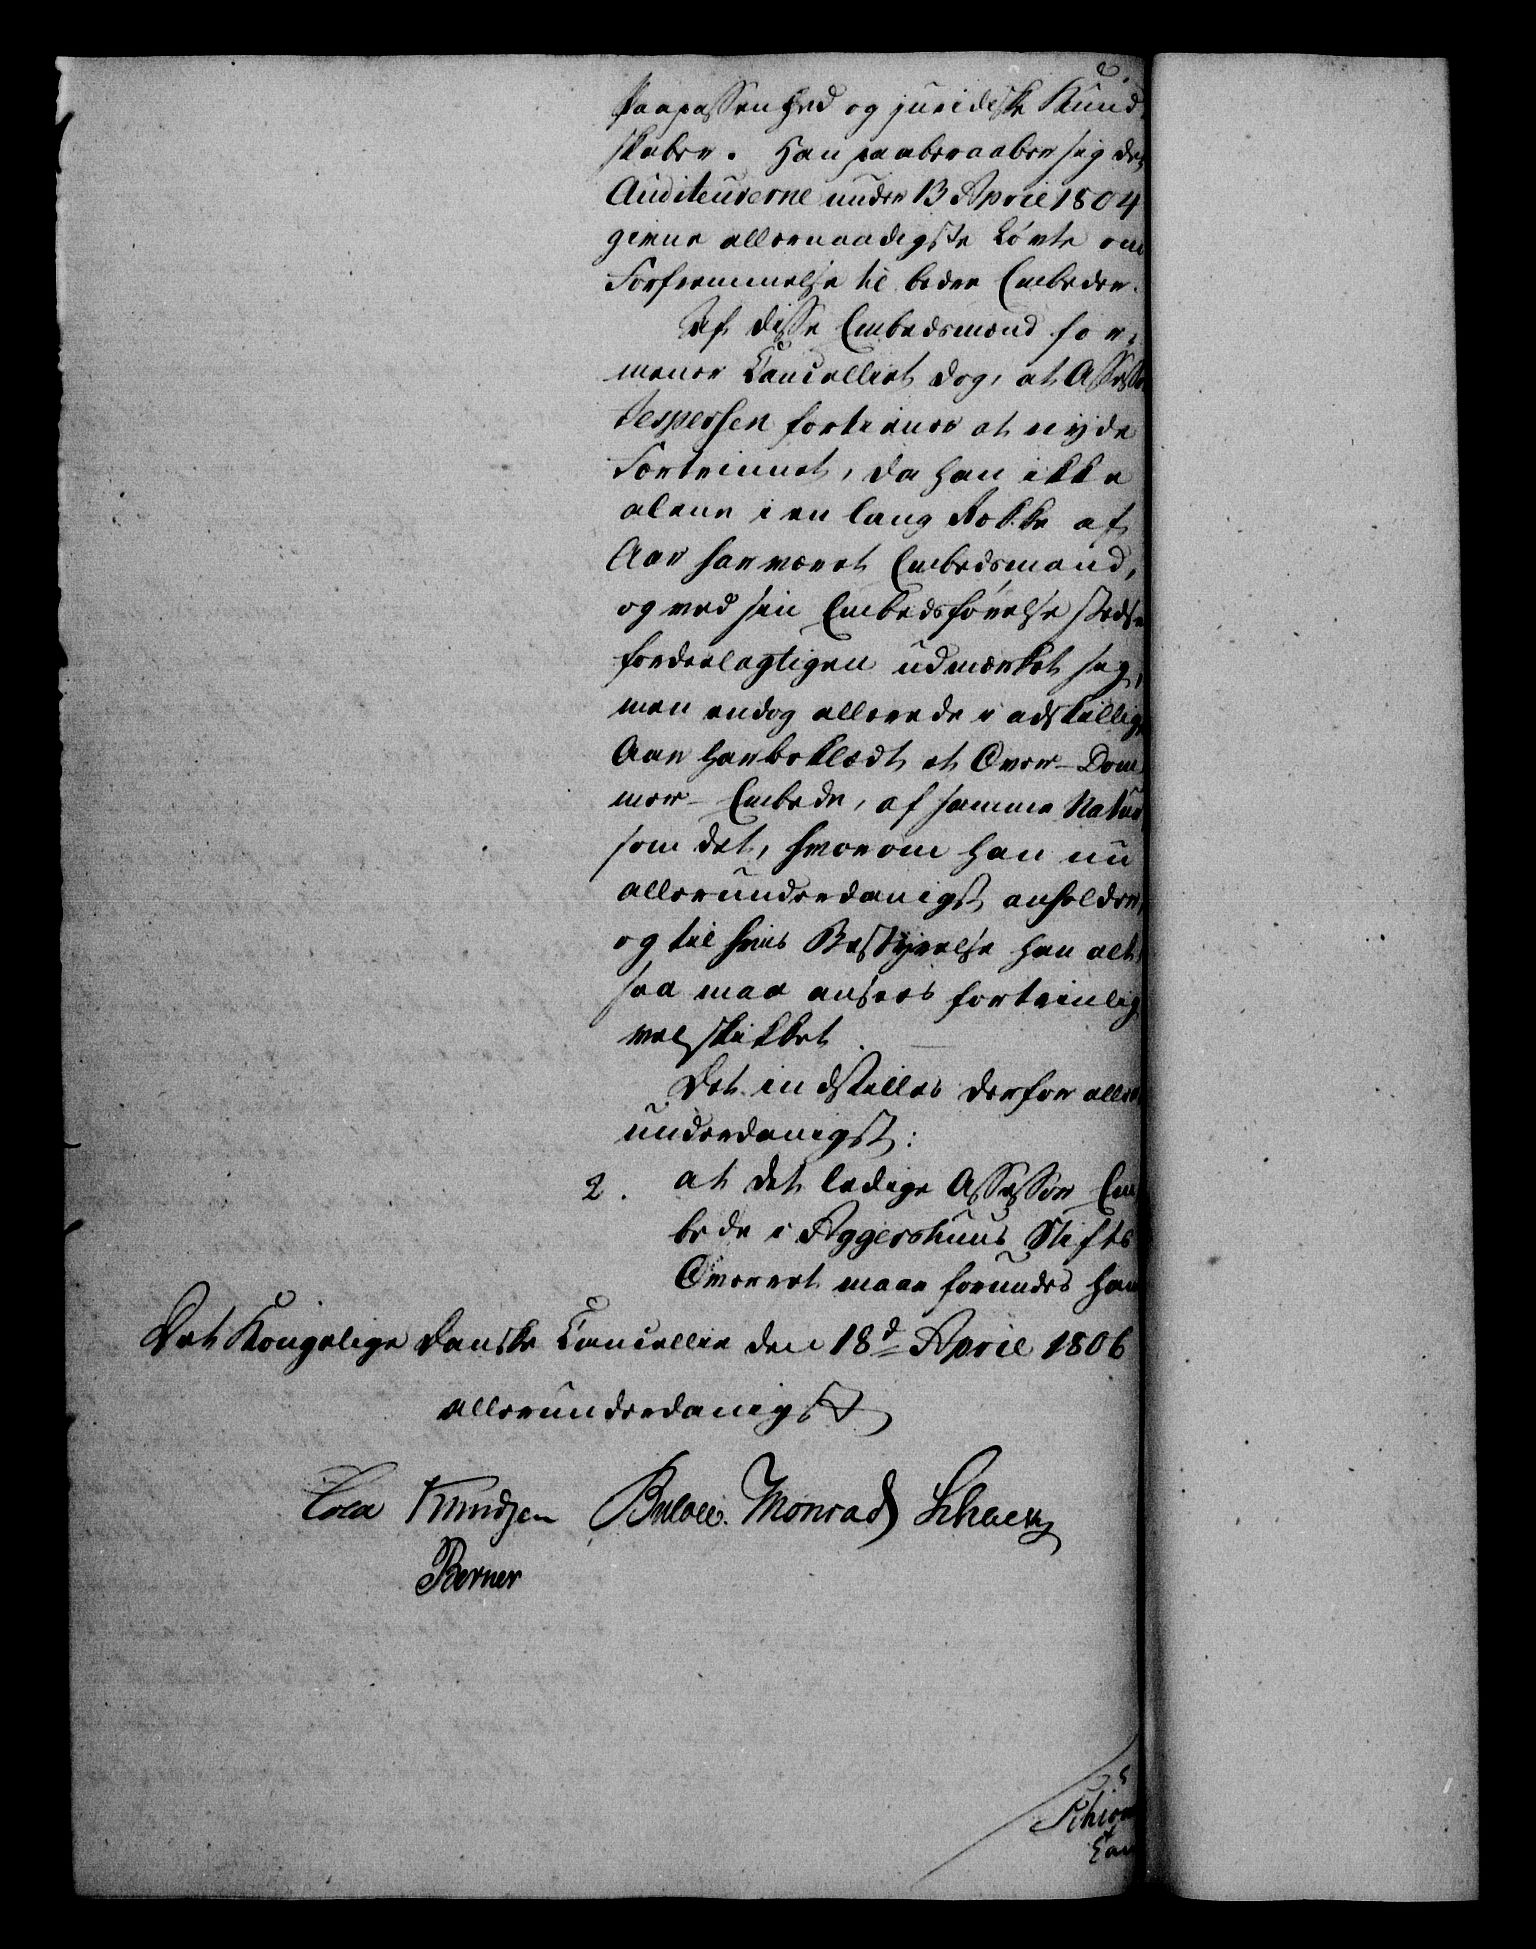 Paapassenhed og juridiske Kund
skaber. Han paaberaaber sig det
Auditeurerne under 13 April 1804
givne allernaadigste Løvte om
Forfremmelse til bedre Embeder.
Af disse Embedsmænd for,
mener Cancelliet dog, at Assessor
Jespersen fortiener at nyde
Fortrinnet, da han ikke
alene i en lang Række af
Aar har været Embedsmand,
og ved sin Embedsførelse stedse
fordeelagtigen udmærket sig,
men endog allerede i adskillige
Aar har beklædt et Over-Dom,
mer-Embede, af samme Natur
som det, hvorom han nu
allerunderdanigst anholder,
og til hvis Bestyrelse han alt,
saa maa ansees fortrinlig
vel skikket.
Det indstilles derfor aller
underdanigst:
2. at det ledige Assessor Em
bede i Aggershuus Stifts
Overret maae forundes ham
Det Kongelige Danske Cancellie den 18d April 1806
allerunderdanigst
Cold Knudsen Bülow. Monrad Schack
Berner